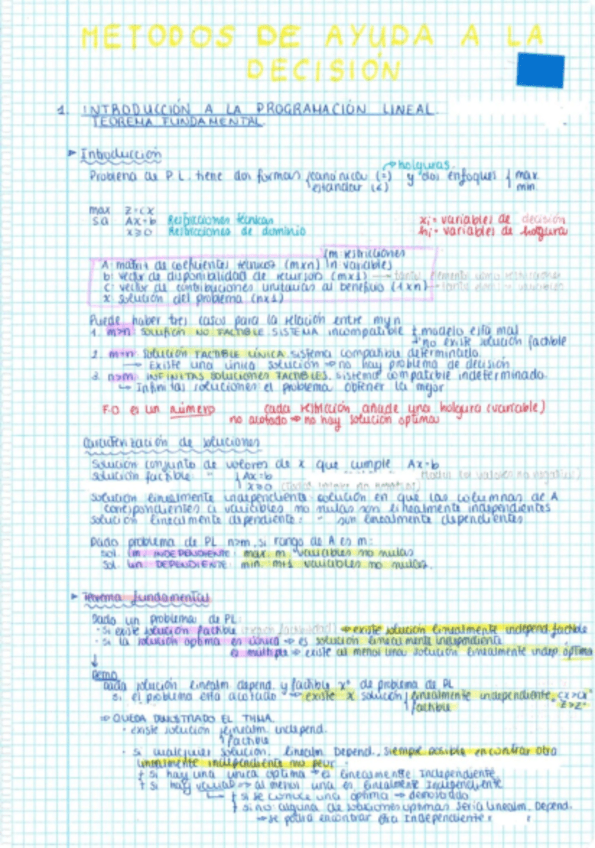 METODOS DE AYUDA A LA
DECISIÓN
1. INTRODUCCIÓN A LA PROGRAMACIÓN LINEAL.
TEOREMA FUNDAMENTAL.
► Introducción
Problema de P.L. tiene dos formas canónica (=) y dos enfoques max
holguras.
estandar (≤) min
max Z=cx
sa Ax=b Restricciones técnicas
x≥0 Restricciones de dominio
xi= variables de decisión
hi= variables de holgura
m restricciones
A: matriz de coeficientes técnicos (mxn) n variables
b: vector de disponibilidad de recursos (mx1)
c: vector de contribuciones unitarias al beneficio (1xn)
x: solución del problema (nx1)
Puede haber tres casos para la relación entre m y n
1. m>n solución NO FACTIBLE. SISTEMA incompatible modelo esta mal
no existe solución factible
2. m=n solución FACTIBLE ÚNICA. sistema compatible determinado
Existe una única solución ⇒ no hay problema de decisión
3. n>m INFINITAS SOLUCIONES FACTIBLES. sistema compatible indeterminado.
Infinitas soluciones el problema obtener la mejor
F.O es un número cada restricción añade una holgura (variable)
no acotado ⇒ no hay solución optima
Caracterización de soluciones
Solución conjunto de valores de x que cumple Ax=b
solución factible: " Ax=b
x≥0
Solución linealmente independiente: solución en que las columnas de A
correspondientes a variables no nulas son linealmente independientes
solución linealmente dependiente: " " son linealmente dependientes
Dado problema de PL n>m, si rango de A es m:
sol. lm. INDEPENDIENTE: max. m variables no nulas
sol. lm DEPENDIENTE: min. m+1 variables no nulas.
► Teorema fundamental
Dado un problema de PL:
- Si existe solución factible ⇒ existe solución linealmente independ. factible
- si la solución optima es única ⇒ es solución linealmente independiente
es múltiple ⇒ existe al menos una solución linealmente indep. óptima
Demo
dada solución linealm depend. y factible x° de problema de PL
si el problema esta acotado ⇒ existe x solución linealmente independiente
factible
⇒ QUEDA DEMOSTRADO EL TMA.
· existe solución linealm. independ.
factible
· si cualquier solución linealm Depend., siempre posible encontrar otra
linealmente independiente no peor.
si hay una única optima ⇒ es linealmente Independiente
si hay al menos una es linealmente Independiente
si se conoce una optima ⇒ demostrado
si no alguna de soluciones optimas seria linealm. Depend.
⇒ se podrá encontrar otra Independiente